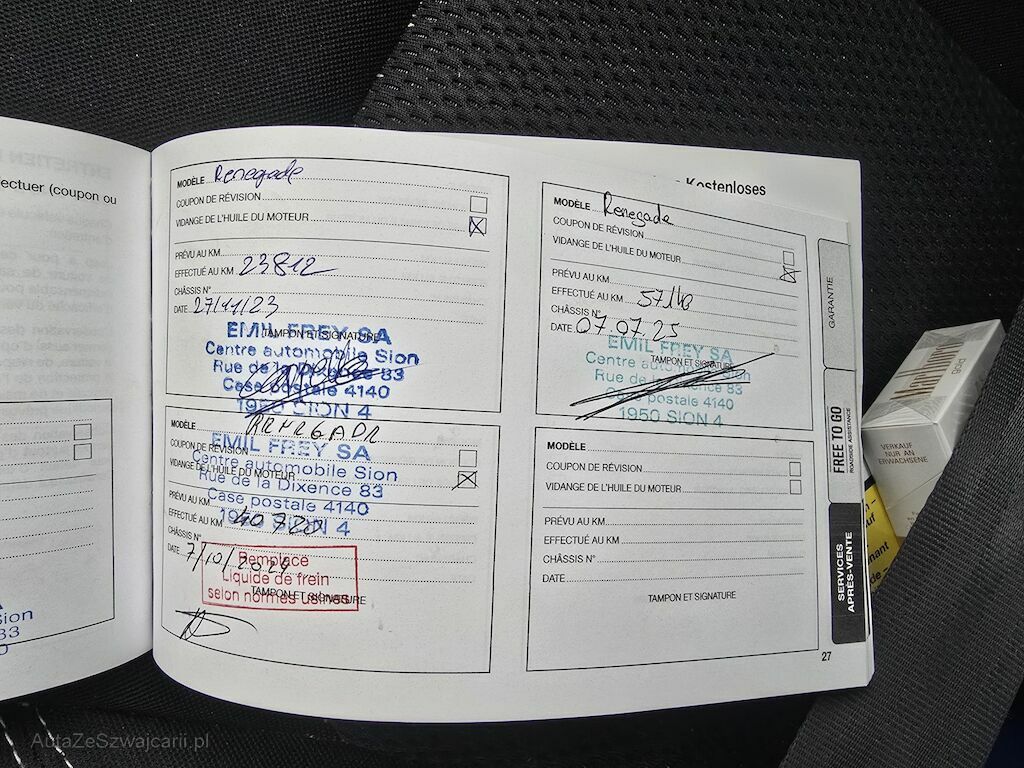 ectuer (coupon ou
sion
33
MODÈLE Renegade
COUPON DE RÉVISION
VIDANGE DE L'HUILE DU MOTEUR
PRÉVU AU KM
EFFECTUÉ AU KM 23812
CHÂSSIS N°
DATE 27/11/23
TAMPON ET SIGNATURE
EMIL FREY SA
Centre automobile Sion
Rue de la Dixence 83
Case postale 4140
1950 SION 4
MODÈLE
COUPON DE RÉVISION
VIDANGE DE L'HUILE DU MOTEUR
PRÉVU AU KM
EFFECTUÉ AU KM 40720
CHÂSSIS N°
DATE 7/10/2024
TAMPON ET SIGNATURE
EMIL FREY SA
Centre automobile Sion
Rue de la Dixence 83
Case postale 4140
1950 SION 4
Remplacé
Liquide de frein
selon normes usines
Kostenloses
MODÈLE Renegade
COUPON DE RÉVISION
VIDANGE DE L'HUILE DU MOTEUR
PRÉVU AU KM
EFFECTUÉ AU KM
CHÂSSIS N°
DATE 07.07.25
TAMPON ET SIGNATURE
EMIL FREY SA
Centre automobile Sion
Rue de la Dixence 83
Case postale 4140
1950 SION 4
MODÈLE
COUPON DE RÉVISION
VIDANGE DE L'HUILE DU MOTEUR
PRÉVU AU KM
EFFECTUÉ AU KM
CHÂSSIS N°
DATE
TAMPON ET SIGNATURE
GARANTIE
FREE TO GO
ROADSIDE ASSISTANCE
SERVICES
APRÈS-VENTE
27
Marlboro
VERKAUF
NUR AN
ERWACHSENE
AutaZeSzwajcarii.pl